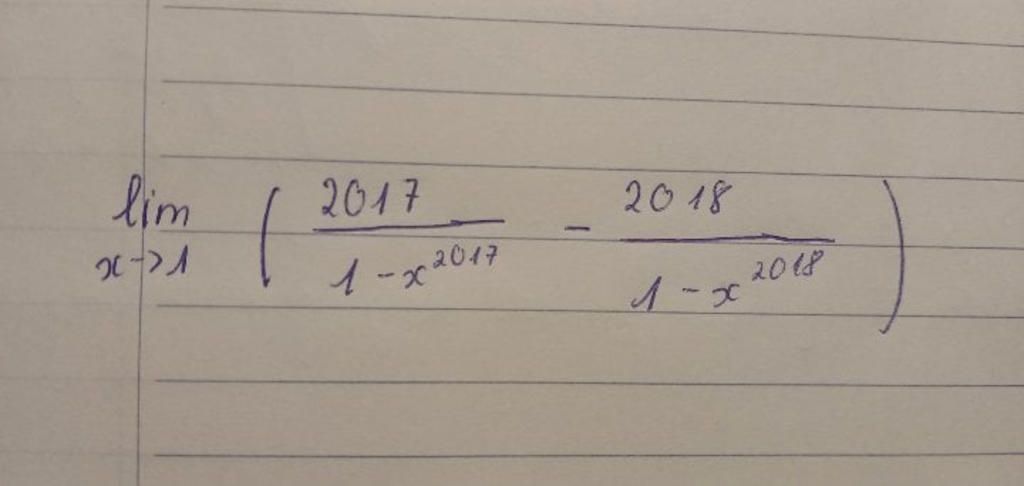 lim x->1 ( 2017 / (1 - x^2017) - 2018 / (1 - x^2018) )